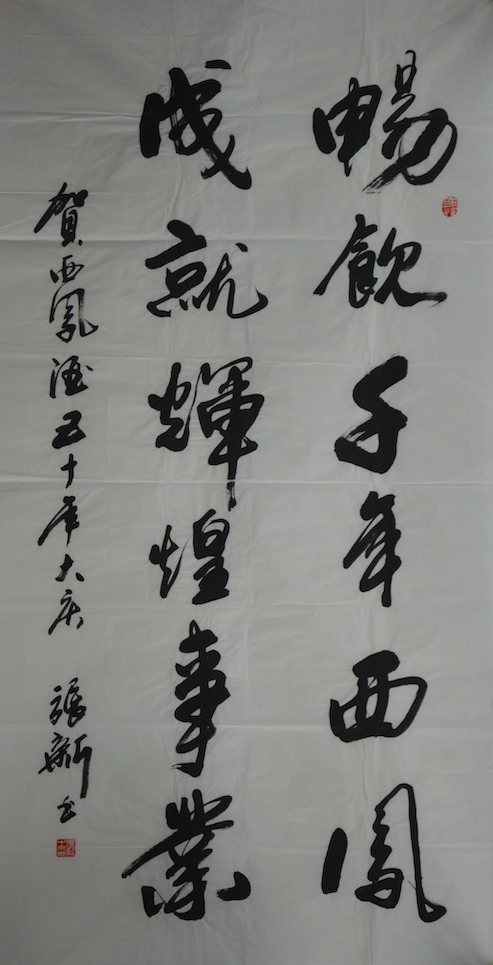 暢飲千年西鳳
成就輝煌事業
賀西鳳酒五十年大庆
張新书